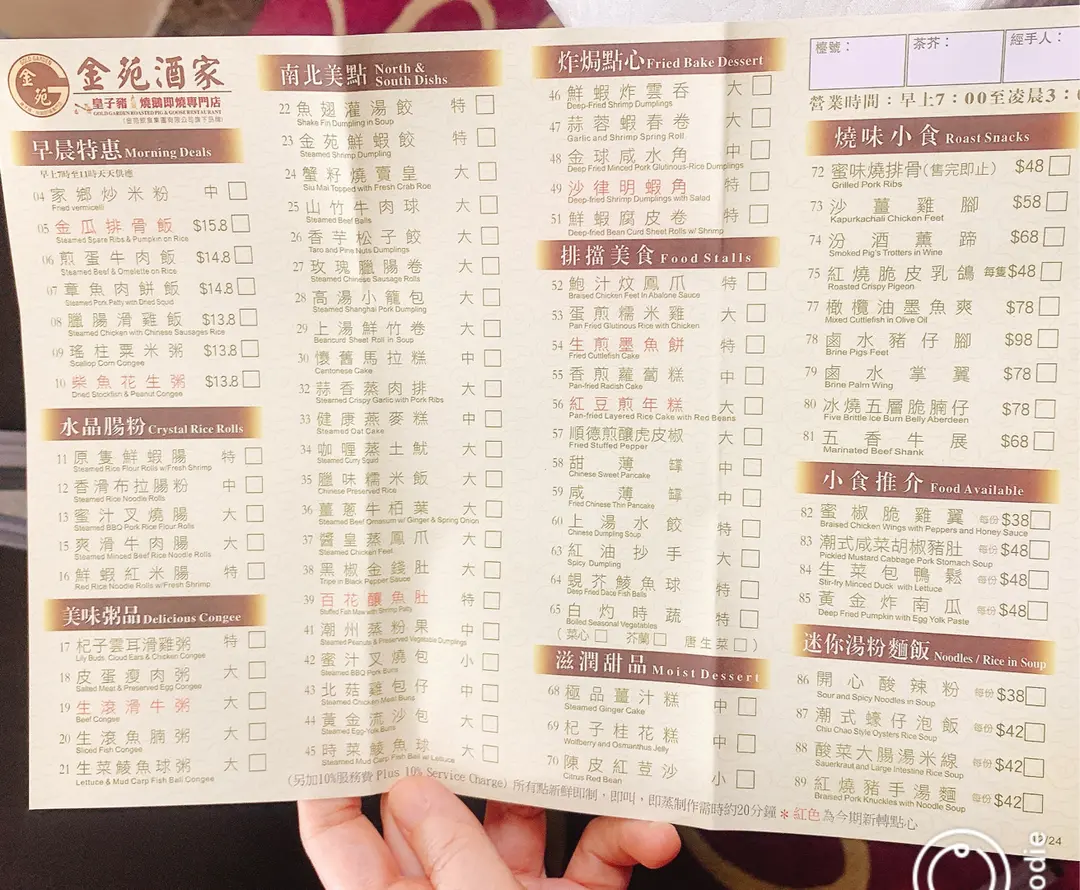 GOLD GARDEN
金苑
金苑酒家
皇子豬 燒鵝即燒專門店
GOLD GARDEN ROASTED PIG & GOOSE RESTAURANT
(金苑飲食集團有限公司旗下品牌)
早晨特惠 Morning Deals
早上7時至11時天天供應
04 家鄉炒米粉 中
Fried vermicelli
05 金瓜排骨飯 $15.8
Steamed Spare Ribs & Pumpkin on Rice
06 煎蛋牛肉飯 $14.8
Steamed Beef & Omelette on Rice
07 章魚肉餅飯 $14.8
Steamed Pork Patty with Dried Squid
08 臘腸滑雞飯 $13.8
Steamed Chicken with Chinese Sausages Rice
09 瑤柱粟米粥 $13.8
Scallop Corn Congee
10 柴魚花生粥 $13.8
Dried Stockfish & Peanut Congee
水晶腸粉 Crystal Rice Rolls
11 原隻鮮蝦腸 特
Steamed Rice Flour Rolls w/Fresh Shrimp
12 香滑布拉腸粉 中
Steamed Rice Noodle Rolls
13 蜜汁叉燒腸 大
Steamed BBQ Pork Rice Flour Rolls
15 爽滑牛肉腸 大
Steamed Minced Beef Rice Noodle Rolls
16 鮮蝦紅米腸 特
Red Rice Noodle Rolls w/Fresh Shrimp
美味粥品 Delicious Congee
17 杞子雲耳滑雞粥 特
Lily Buds, Cloud Ears & Chicken Congee
18 皮蛋瘦肉粥 大
Salted Meat & Preserved Egg Congee
19 生滾滑牛粥 大
Beef Congee
20 生滾魚腩粥 大
Sliced Fish Congee
21 生菜鯪魚球粥 大
Lettuce & Mud Carp Fish Ball Congee
南北美點 North & South Dishs
22 魚翅灌湯餃 特
Shake Fin Dumpling in Soup
23 金苑鮮蝦餃 特
Steamed Shrimp Dumpling
24 蟹籽燒賣皇 大
Siu Mai Topped with Fresh Crab Roe
25 山竹牛肉球 大
Steamed Beef Balls
26 香芋松子餃 大
Taro and Pine Nuts Dumplings
27 玫瑰臘腸卷 大
Steamed Chinese Sausage Rolls
28 高湯小籠包 大
Steamed Shanghai Pork Dumpling
29 上湯鮮竹卷 大
Beancurd Sheet Roll in Soup
30 懷舊馬拉糕 中
Cantonese Cake
32 蒜香蒸肉排 大
Steamed Crispy Garlic with Pork Ribs
33 健康燕麥糕 中
Steamed Oat Cake
34 咖喱蒸土魷 大
Steamed Curry Squid
35 臘味糯米飯 大
Chinese Preserved Rice
36 薑蔥牛栢葉 大
Steamed Beef Omasum w/ Ginger & Spring Onion
37 醬皇蒸鳳爪 大
Steamed Chicken Feet
38 黑椒金錢肚 大
Tripe in Black Pepper Sauce
39 百花釀魚肚 特
Stuffed Fish Maw with Shrimp Patty
41 潮州蒸粉果 中
Steamed Peanuts & Preserved Vegetable Dumplings
42 蜜汁叉燒包 小
Steamed BBQ Pork Buns
43 北菇雞包仔 中
Steamed Chicken Meat Buns
44 黃金流沙包 大
Steamed Egg-Yolk Buns
45 時菜鯪魚球 大
Steamed Mud Carp Fish Ball w/ Lettuce
炸焗點心 Fried Bake Dessert
46 鮮蝦炸雲吞 大
Deep-Fried Shrimp Dumplings
47 蒜蓉蝦春卷 大
Garlic and Shrimp Spring Roll
48 金球咸水角 中
Deep Fried Minced Pork Glutinous-Rice Dumplings
49 沙律明蝦角 特
Deep-fried Shrimp Dumplings with Salad
51 鮮蝦腐皮卷 特
Deep-fried Bean Curd Sheet Rolls w/ Shrimp
排擋美食 Food Stalls
52 鮑汁炆鳳爪 特
Braised Chicken Feet In Abalone Sauce
53 蛋煎糯米雞 大
Pan Fried Glutinous Rice with Chicken
54 生煎墨魚餅 特
Fried Cuttlefish Cake
55 香煎蘿蔔糕 中
Pan-fried Radish Cake
56 紅豆煎年糕 大
Pan-fried Layered Rice Cake with Red Beans
57 順德煎釀虎皮椒 大
Fried Stuffed Pepper
58 甜薄罉 中
Chinese Sweet Pancake
59 咸薄罉 中
Fried Chinese Thin Pancake
60 上湯水餃 特
Chinese Dumpling Soup
63 紅油抄手 大
Spicy Dumpling
64 蜆芥鯪魚球 特
Deep Fried Dace Fish Balls
65 白灼時蔬 特
Boiled Seasonal Vegetables
(菜心 芥蘭 唐生菜)
滋潤甜品 Moist Dessert
68 極品薑汁糕 中
Steamed Ginger Cake
69 杞子桂花糕 中
Wolfberry and Osmanthus Jelly
70 陳皮紅荳沙 小
Citrus Red Bean
檯號: 茶芥: 經手人:
營業時間:早上7:00至凌晨3:0
燒味小食 Roast Snacks
72 蜜味燒排骨(售完即止) $48
Grilled Pork Ribs
73 沙薑雞腳 $58
Kapurkachali Chicken Feet
74 汾酒薰蹄 $68
Smoked Pig's Trotters in Wine
75 紅燒脆皮乳鴿 每隻$48
Roasted Crispy Pigeon
77 橄欖油墨魚爽 $78
Mixed Cuttlefish in Olive Oil
78 鹵水豬仔腳 $98
Brine Pigs Feet
79 鹵水掌翼 $78
Brine Palm Wing
80 冰燒五層脆腩仔 $78
Five Brittle Ice Burn Belly Aberdeen
81 五香牛展 $68
Marinated Beef Shank
小食推介 Food Available
82 蜜椒脆雞翼 每份$38
Braised Chicken Wings with Peppers and Honey Sauce
83 潮式咸菜胡椒豬肚 每份$48
Pickled Mustard Cabbage Pork Stomach Soup
84 生菜包鴨鬆 每份$48
Stir-fry Minced Duck with Lettuce
85 黃金炸南瓜 每份$48
Deep Fried Pumpkin with Egg Yolk Paste
迷你湯粉麵飯 Noodles / Rice in Soup
86 開心酸辣粉 每份$38
Sour and Spicy Noodles in Soup
87 潮式蠔仔泡飯 每份$42
Chiu Chao Style Oysters Rice Soup
88 酸菜大腸湯米線 每份$42
Sauerkraut and Large Intestine Rice Soup
89 紅燒豬手湯麵 每份$42
Braised Pork Knuckles with Noodle Soup
(另加10%服務費 Plus 10% Service Charge) 所有點新鮮即制,即叫,即蒸制作需時約20分鐘 * 紅色為今期新轉點心
12/24
odie